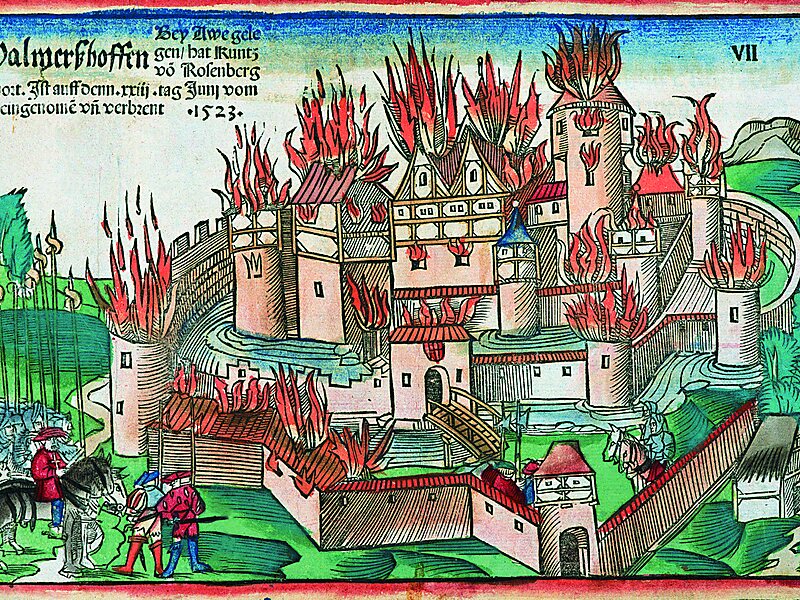 Walmerßhoffen
Bey Awe gele
gen/ hat Kuntz
vō Rosenberg
.xxiij .tag Junij vom
eingenomē vn̄ verbrent .1523.
VII